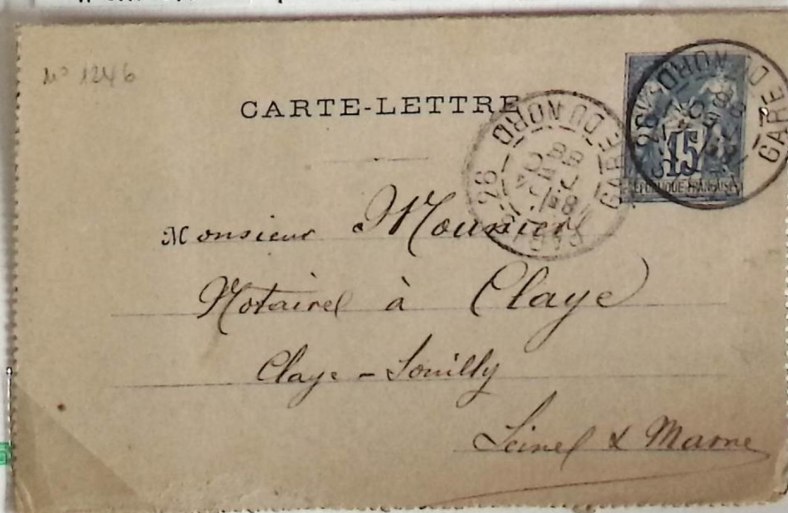 Nº 1246
CARTE-LETTRE
GARE DU NORD
GARE DU NORD
PARIS
26
15
RÉPUBLIQUE FRANÇAISE
Monsieur Mounier
Notaire à Claye
Claye-Souilly
Seine & Marne